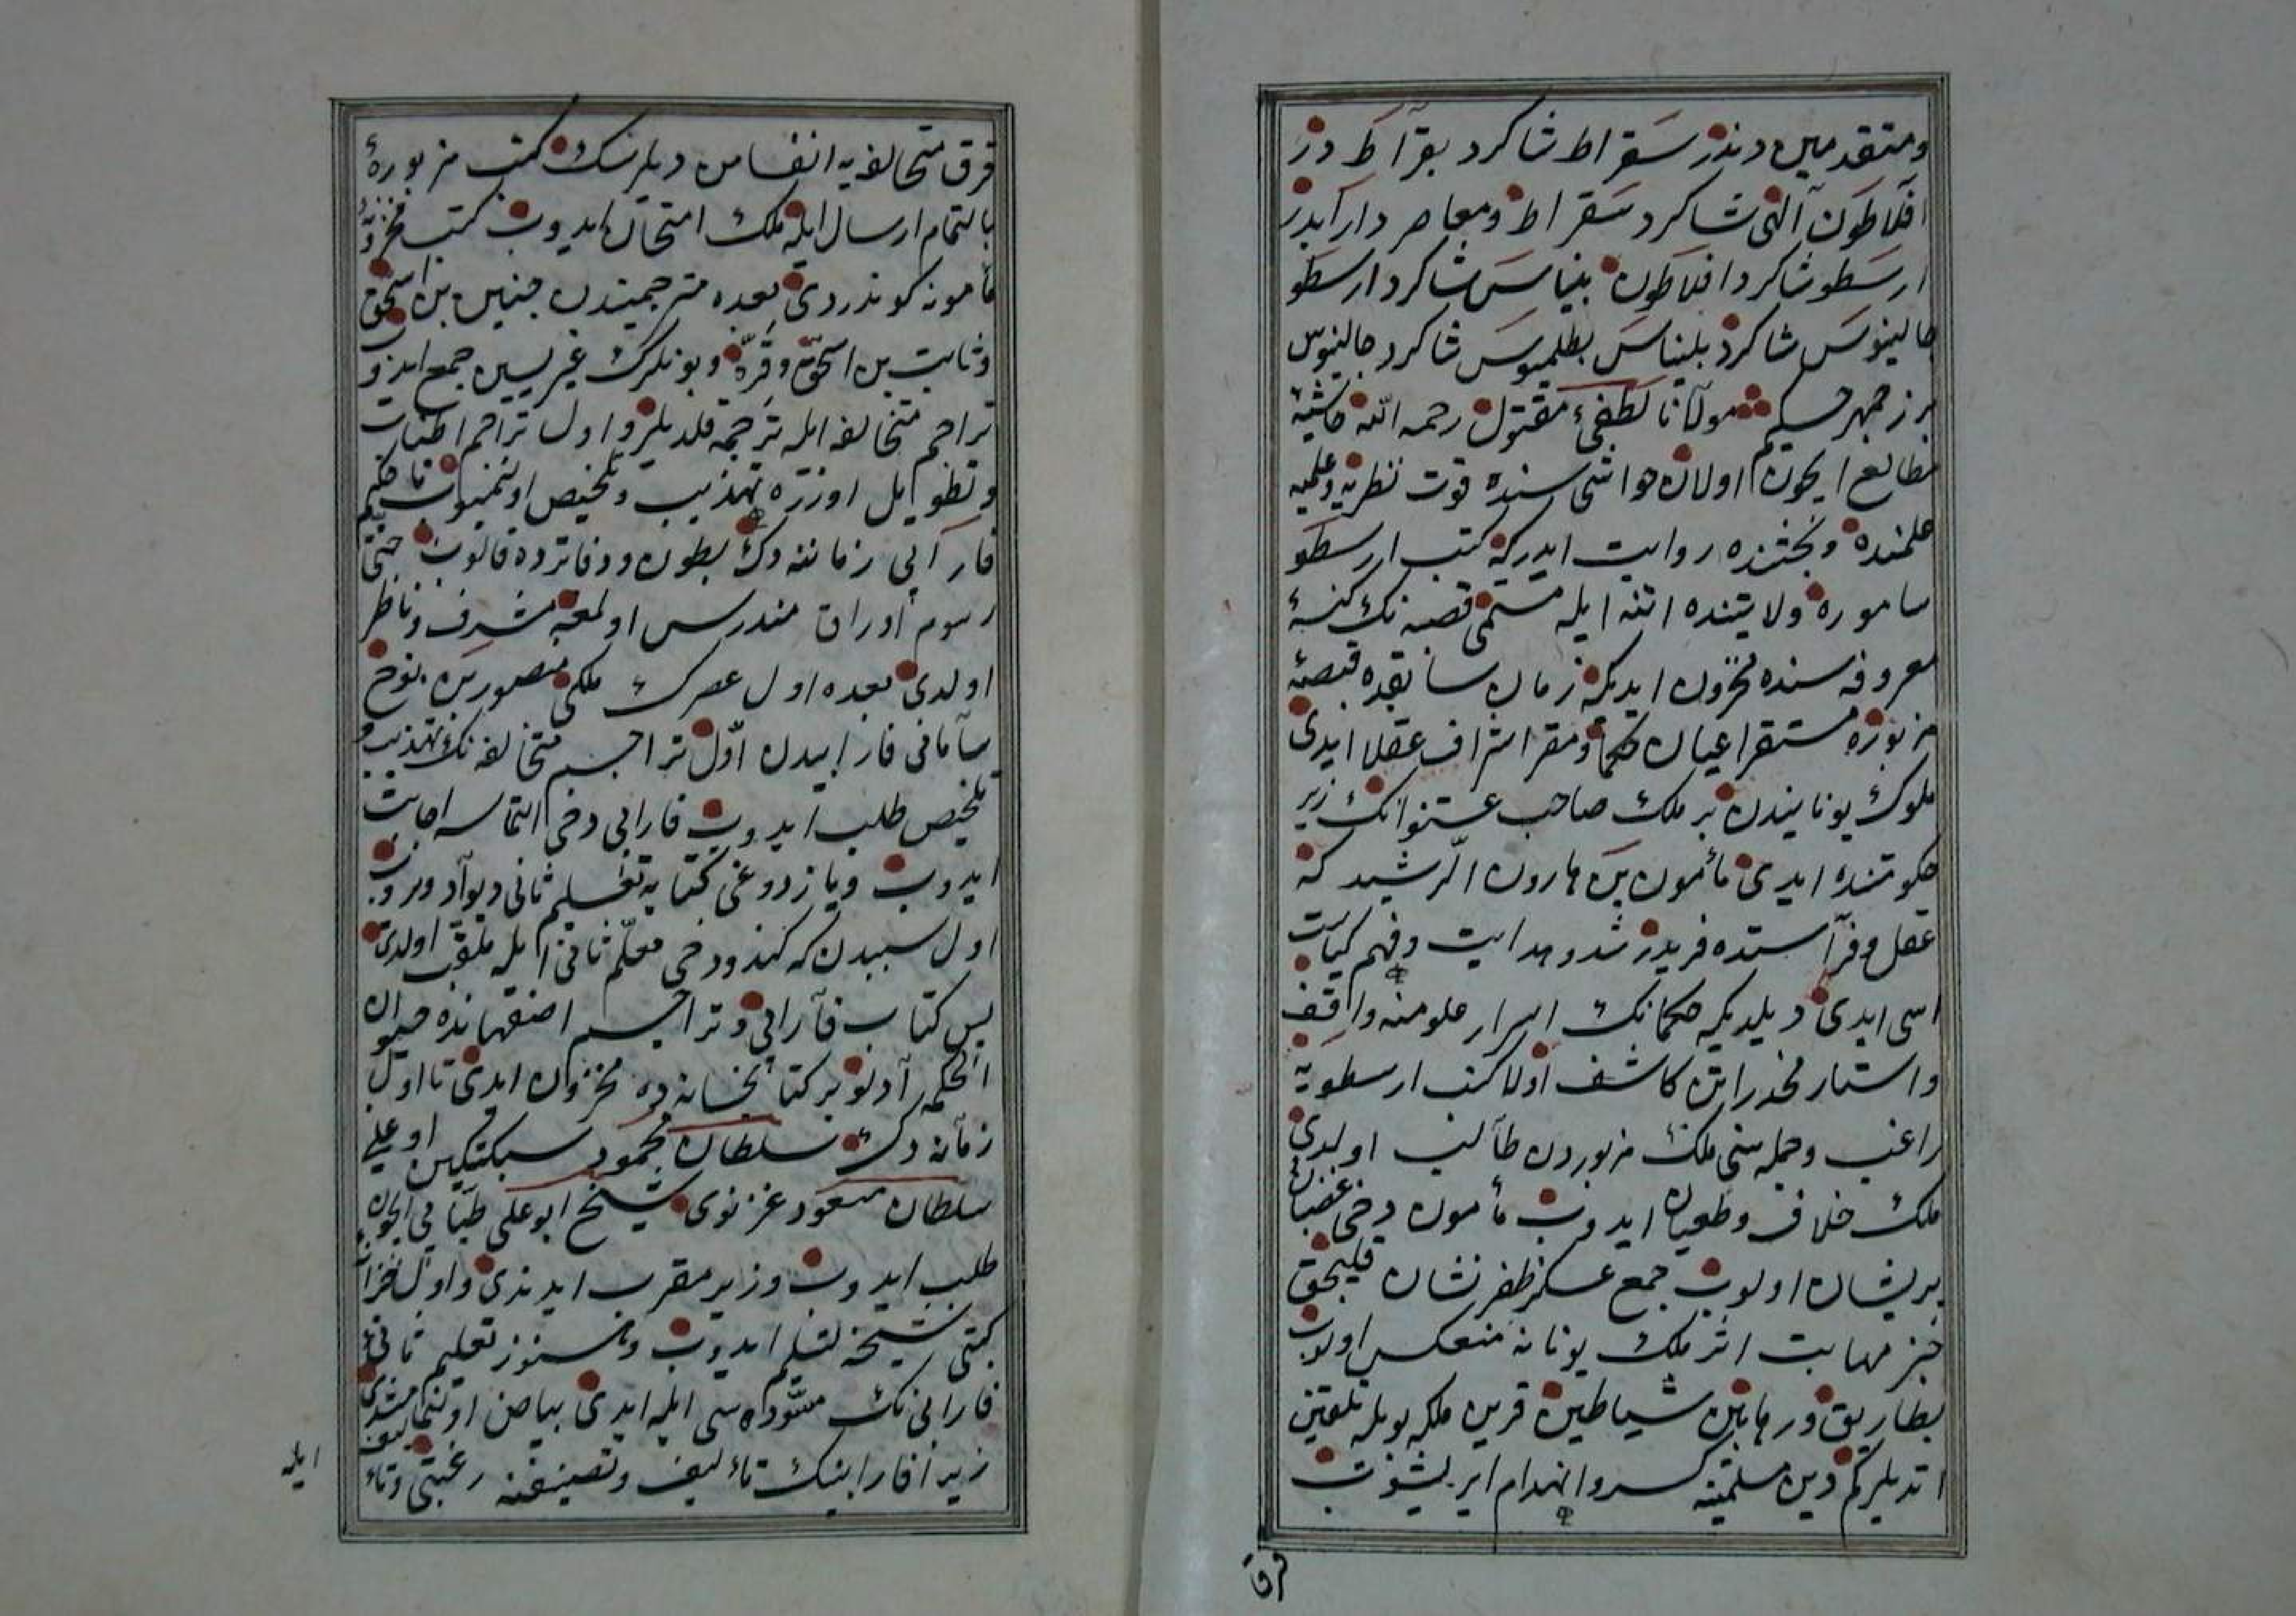 ومتقدمین دندر سقراط شاکرد بقراط در
افلاطون آلنی شاکرد سقراط ومعاصر دارابدر
ارسطو شاکرد افلاطون بنیاس شاکرد ارسطو
جالینوس شاکرد بلیناس بطلمیوس شاکرد جالینوس
بزرجمهر حکیم مولانا لطفی مقتول رحمه الله حاشیهٔ
مطالع ایچون اولان حواشی سنده قوت نظریه وعلمیه
علمنده وبحثنده روایت ایدرکه کتب ارسطو
ساموره ولایتنده اتنه ایله مسمی قصبه نک کنیسهٔ
معروفه سنده مخزون ایدیکه زمان سابقده قصبهٔ
مزبوره مستقر اعیان حکما ومقر اشراف عقلا ایدی
ملوک یونانیندن بر ملک صاحب عنوانک زیر
حکومتنده ایدی مأمون بن هارون الرشید که
عقل وفراستده فرید رشد وهدایت وفهم کیاست
اسی ایدی دیلدیکه حکمانک اسرار علومنه واقف
واستار مخدراتن کاشف اولا کتب ارسطویه
راغب وجمله سنی ملک مزبوردن طالب اولدی
ملک خلاف وطغیان ایدوب مأمون دخی غضبان
پریشان اولوب جمع عسکر ظفر نشان قیلیجق
خبر مهابت اثر ملک یونانه منعکس اولوب
بطاریق ورهابین شیاطین قرین ملکه بویله تلقین
اتدیلرکم دین مسلمینه کسر وانهدام ایریشوب
فرق
فرق متخالفیه انفاس دیلرسک کتب مزبورهٔ
بالتمام ارسال ایله ملک امتحان ایدوب کتب مخزونه
مأمونه کوندردی بعده مترجمیندن حنین بن اسحق
وثابت بن اسحق وقره وبونلرک غیریسین جمع ایدوب
تراجم متخالفه ایله ترجمه قلدیلر واول تراجم اطناب
وتطویل اوزره تهذیب وتلخیص اولنمیوب تا حکیم
فارابی زماننه دک بطون ودفاترده قالوب حتی
رسوم اوراق مندرس اولمغه مشرف وناظر
اولدی بعده اول عصرک ملکی منصور بن نوح
سامانی فارابیدن اول تراجم متخالفه نک تهذیب و
تلخیص طلب ایدوب فارابی دخی التماسه اجابت
ایدوب ویازدوغی کتابه تعلیم ثانی دیو آد ویروب
اول سببدن که کندو دخی معلم ثانی ایله ملقب اولدی
پس کتاب فارابی وتراجم اصفهانده صوان
الحکمه آدلو بر کتابخانه ده مخزون ایدی تا اول
زمانه دک سلطان محمود سبکتکین اوغلی
سلطان مسعود غزنوی شیخ ابو علی طبابی ایچون
طلب ایدوب وزیر مقرب ایدندی واول خزانه
کتبی شیخه تسلیم ایدوب وهنوز تعلیم ثانی
فارابی نک مسوده سی ایله ایدی بیاض اولنمامشدی
زیرا فارابینک تألیف وتصنیفنه رغبتی وتألیف
ایله